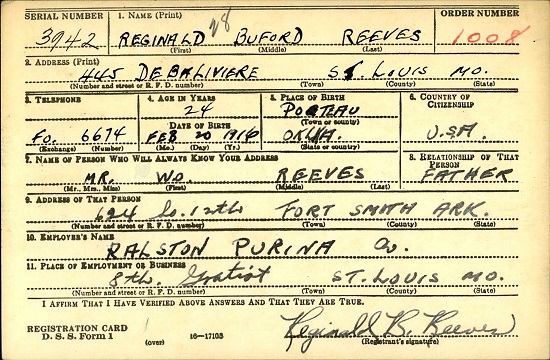 SERIAL NUMBER 1. NAME (Print) ORDER NUMBER
28
3942 REGINALD BUFORD REEVES 1008
(First) (Middle) (Last)
2. ADDRESS (Print)
445 DEBALIVIERE ST. LOUIS MO.
(Number and street or R. F. D. number) (Town) (County) (State)
3. TELEPHONE 4. AGE IN YEARS 5. PLACE OF BIRTH 6. COUNTRY OF CITIZENSHIP
24 POTEAU
DATE OF BIRTH (Town or county)
FO. 6674 FEB 20 1916 OKLA. U.S.A.
(Exchange) (Number) (Mo.) (Day) (Yr.) (State or country)
7. NAME OF PERSON WHO WILL ALWAYS KNOW YOUR ADDRESS 8. RELATIONSHIP OF THAT PERSON
MR. W.D. REEVES FATHER
(Mr., Mrs., Miss) (First) (Middle) (Last)
9. ADDRESS OF THAT PERSON
624 So. 12th FORT SMITH ARK.
(Number and street or R. F. D. number) (Town) (County) (State)
10. EMPLOYER'S NAME
RALSTON PURINA Co.
11. PLACE OF EMPLOYMENT OR BUSINESS
8th. Gratiot ST. LOUIS MO.
(Number and street or R. F. D. number) (Town) (County) (State)
I AFFIRM THAT I HAVE VERIFIED ABOVE ANSWERS AND THAT THEY ARE TRUE.
Reginald B. Reeves
REGISTRATION CARD
D. S. S. Form 1 (over) 16—17105 (Registrant's signature)